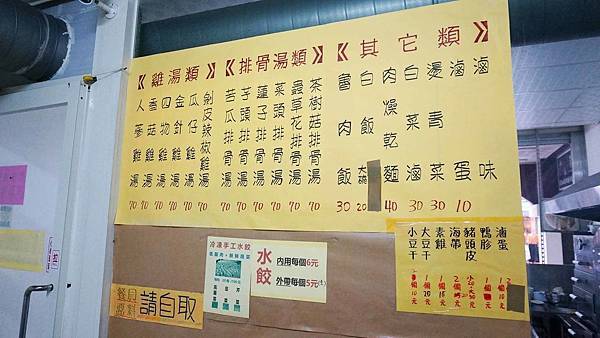 《雞湯類》
人蔘雞湯 70
香菇雞湯 70
四物雞湯 70
金針雞湯 70
瓜仔雞湯 70
剝皮辣椒雞湯 70
《排骨湯類》
苦瓜排骨湯 70
芋頭排骨湯 70
蓮子排骨湯 70
菜頭排骨湯 70
蟲草花排骨湯 70
茶樹菇排骨湯 70
《其它類》
肉飯 30
白飯 20
肉燥乾麵 40
白菜滷 30
燙青菜 30
滷蛋 10
滷味
冷凍手工水餃
水餃
內用每個6元
外帶每個5元
請自取
滷蛋
鴨胗
豬頭皮
海帶
素雞
大豆干
小豆干